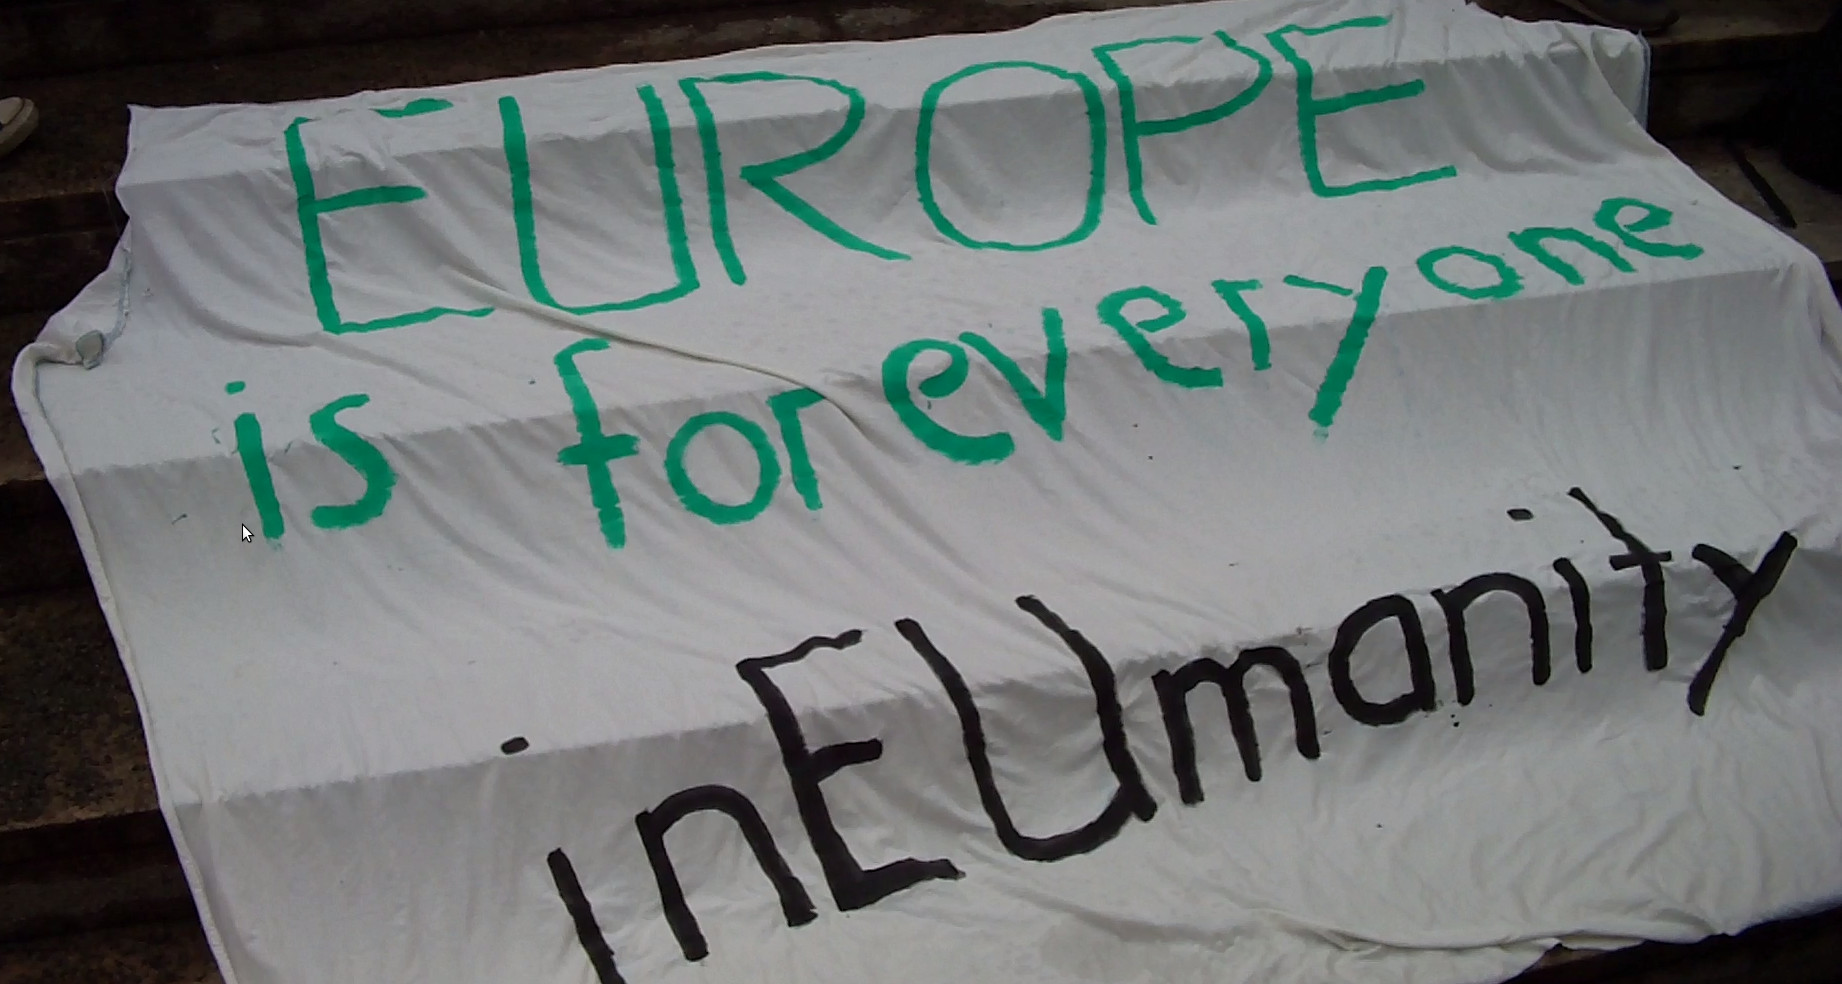 EUROPE
is for everyone
inEUmanity